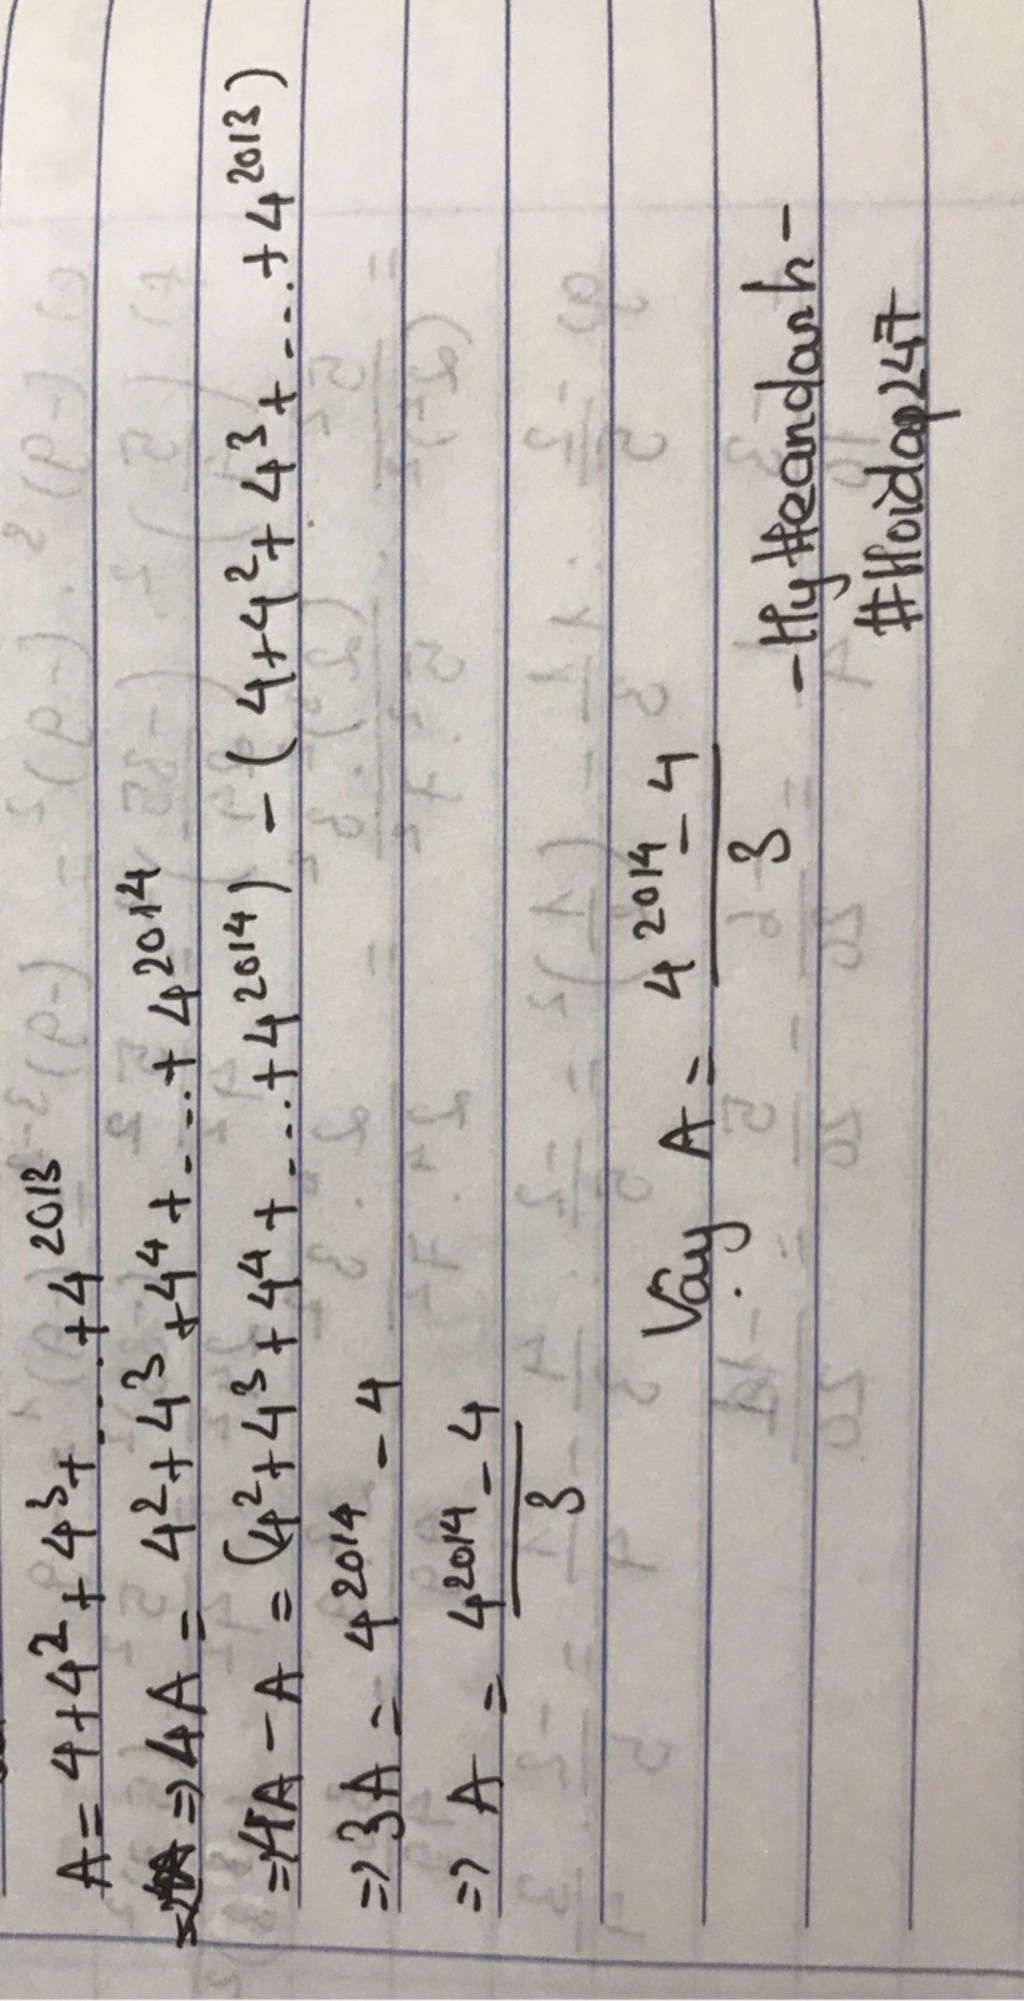 A = 4 + 4² + 4³ + ... + 4²⁰¹³
=> 4A = 4² + 4³ + 4⁴ + ... + 4²⁰¹⁴
=> 4A - A = (4² + 4³ + 4⁴ + ... + 4²⁰¹⁴) - (4 + 4² + 4³ + ... + 4²⁰¹³)
=> 3A = 4²⁰¹⁴ - 4
=> A = (4²⁰¹⁴ - 4)/3
Vậy A = (4²⁰¹⁴ - 4)/3
#Hoidap247